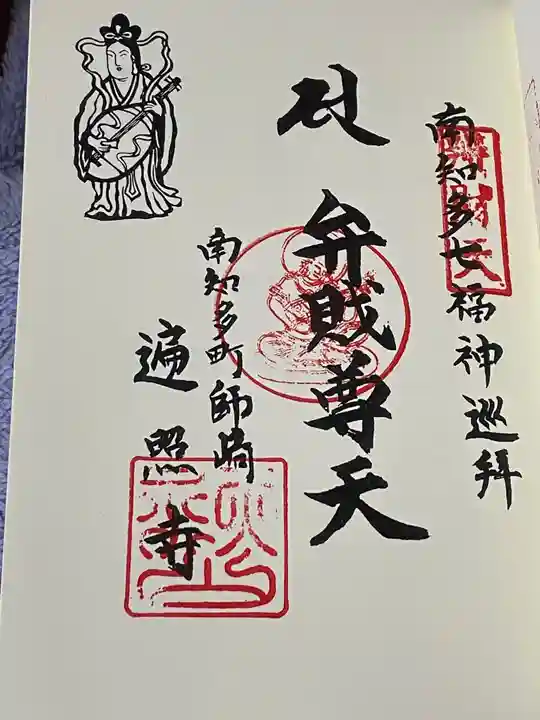 南知多七福神巡拜
弁財天
弁賊尊天
南知多町師崎
遍照寺